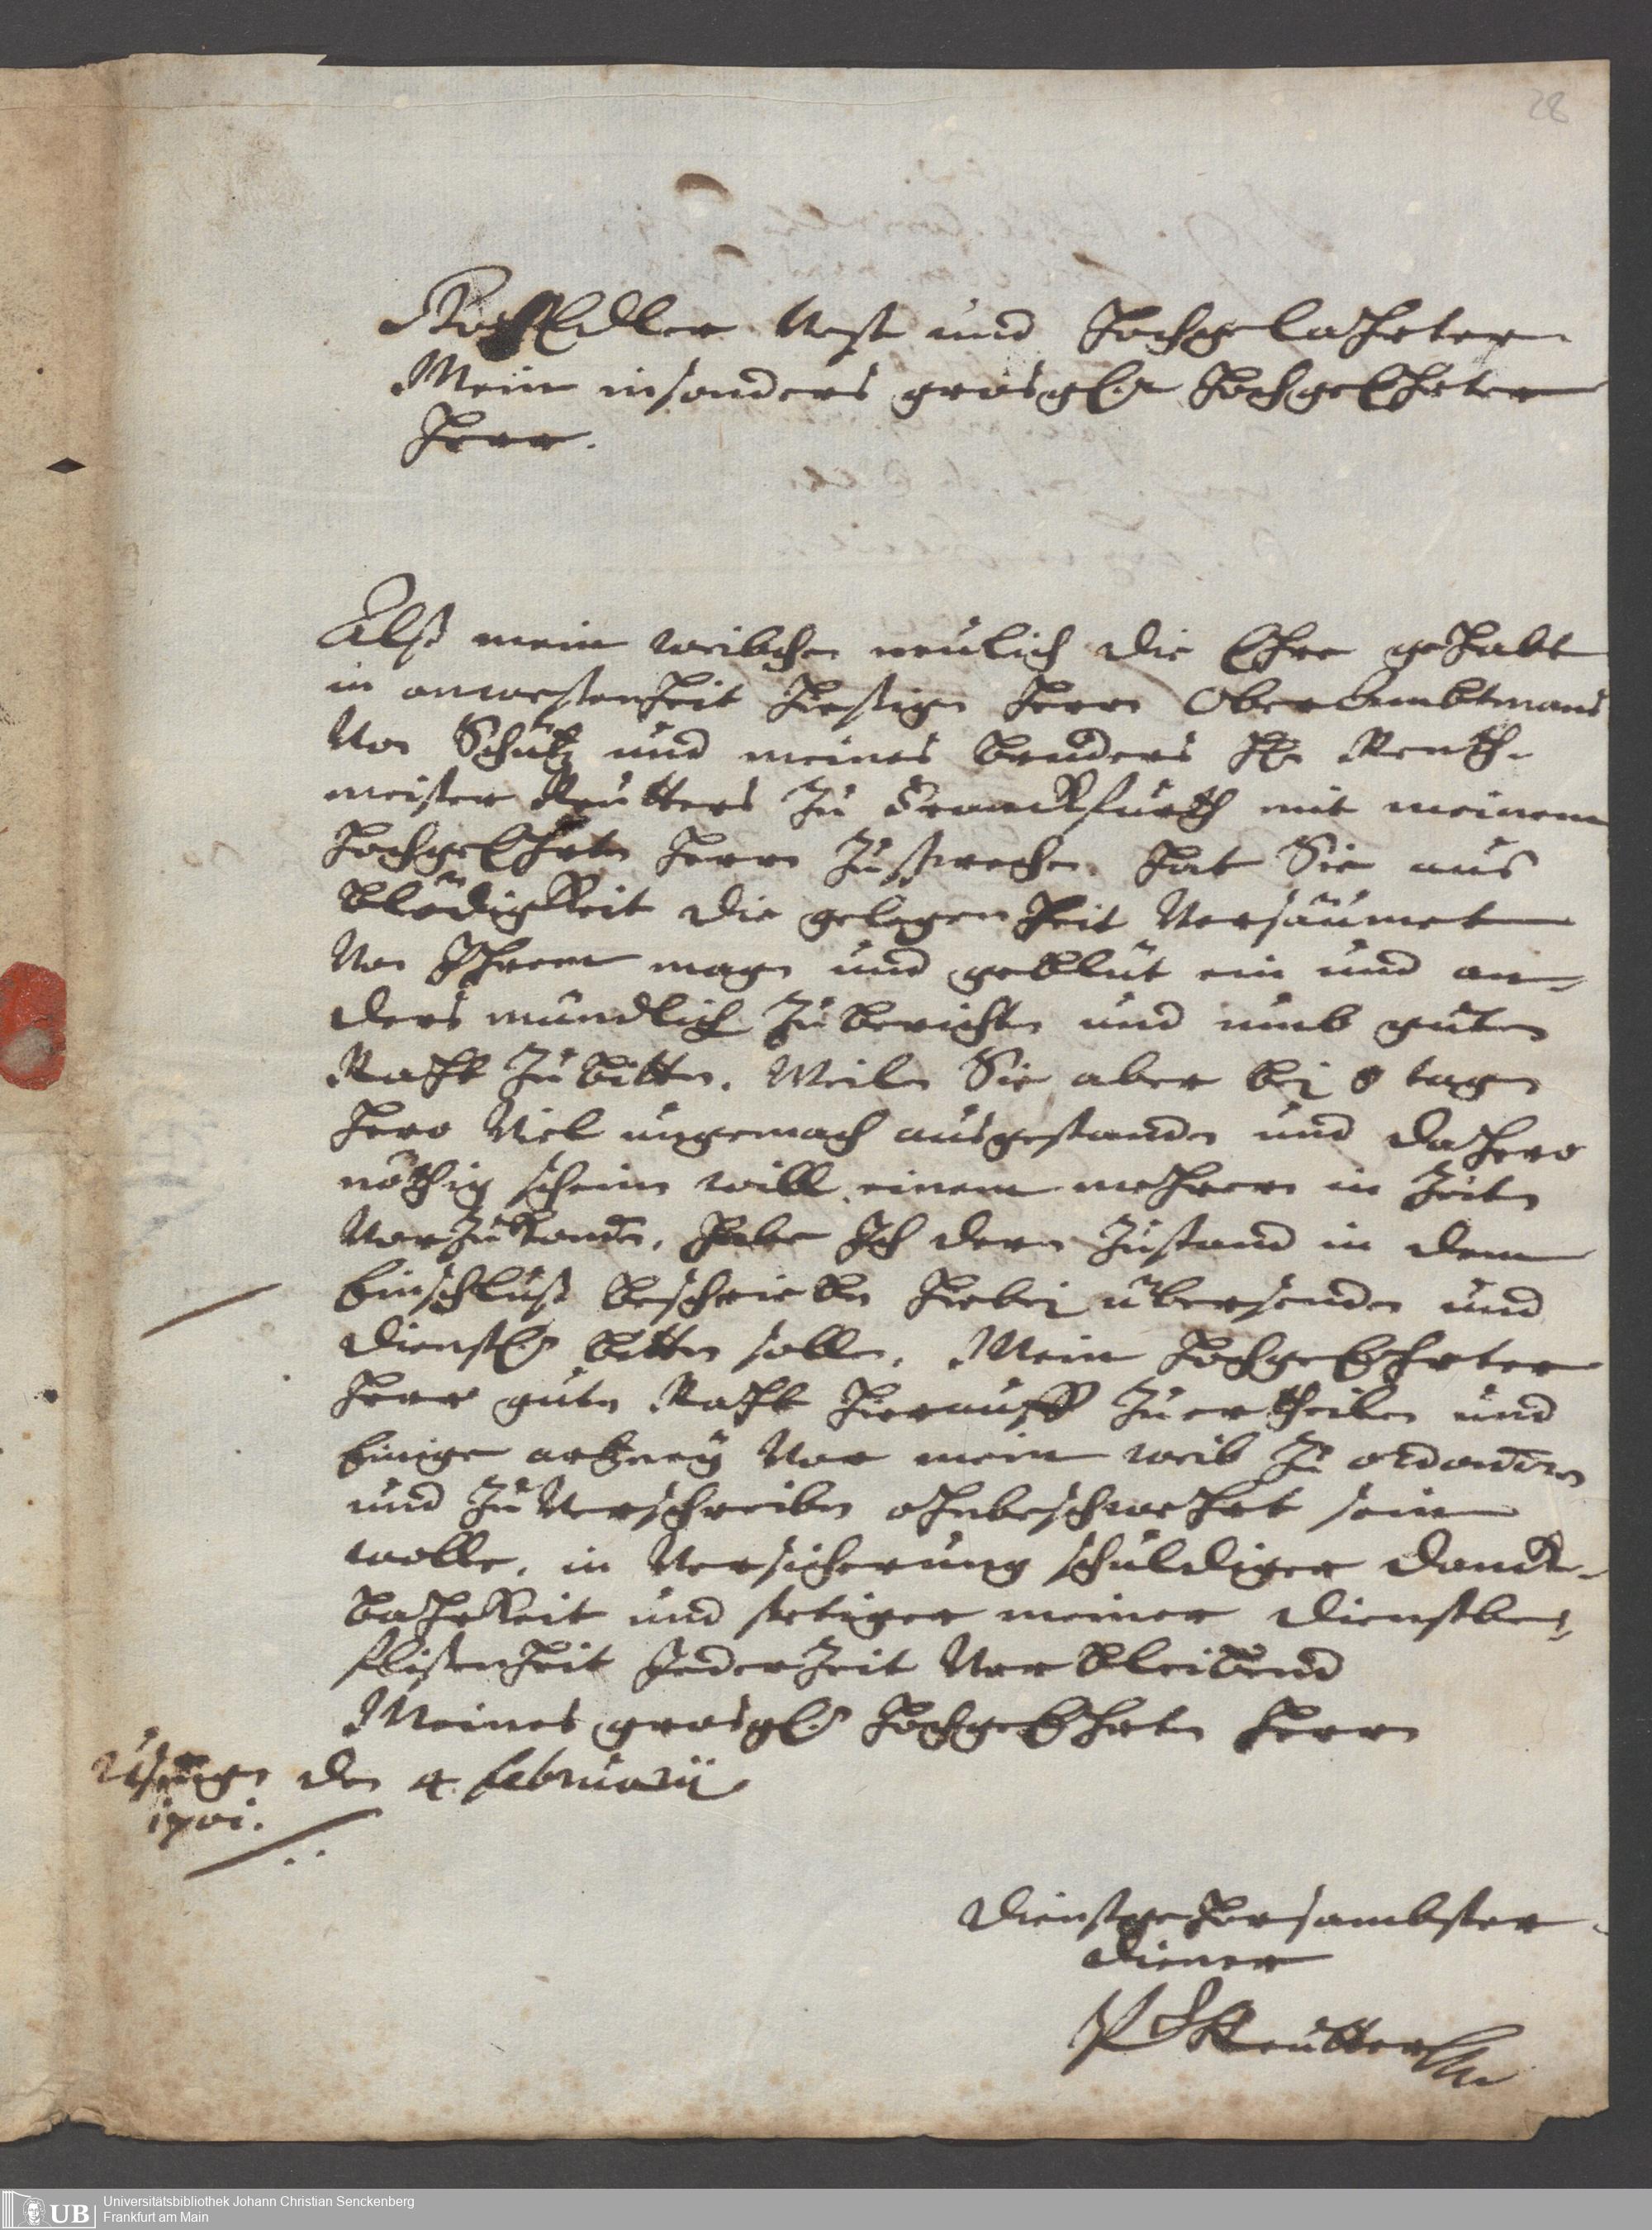 28
HochEdler Vest und Hochgelahrter
Mein insonders grosgl. HochgeEhrter
Herr.
Alß mein weibchen neulich die Ehre gehabt
in anweßenheit hießigen Herrn OberAmbtmans
von Schütz und meines bruders H. Renth-
meister Reutters zu Franckfurth mit meinem
HochgeEhrten Herrn zusprechen, hat Sie aus
blödigkeit die gelegenheit Versäumet
Von Ihrem magen und geblüt ein und an-
ders mündlich zuberichten und umb guten
Raht zubitten. Weilen Sie aber bei 8 tagen
hero Viel ungemach ausgestanden und dahero
nöthig scheinen will einem mehrern in Zeiten
Vorzukommen, habe Ich deren Zustand in dem
Einschluß beschrieben hiebei übersenden und
dienstl. bitten sollen, Mein HochgeEhrter
Herr guten Raht hierauff zuertheilen und
Einige artzney Vor mein weib zu
und zu Verschreiben ohnbeschwehrt sein
wolle, in Versicherung schuldiger danck-
bahrkeit und stetiger meiner dienstbe-
flißenheit Jederzeit Verbleibend
Meines grosgl. HochgeEhrten Herrn
Usingen den 4. Februarii
1701.
dienstgehorsambster
diener
Reutter
UB Universitätsbibliothek Johann Christian Senckenberg
Frankfurt am Main